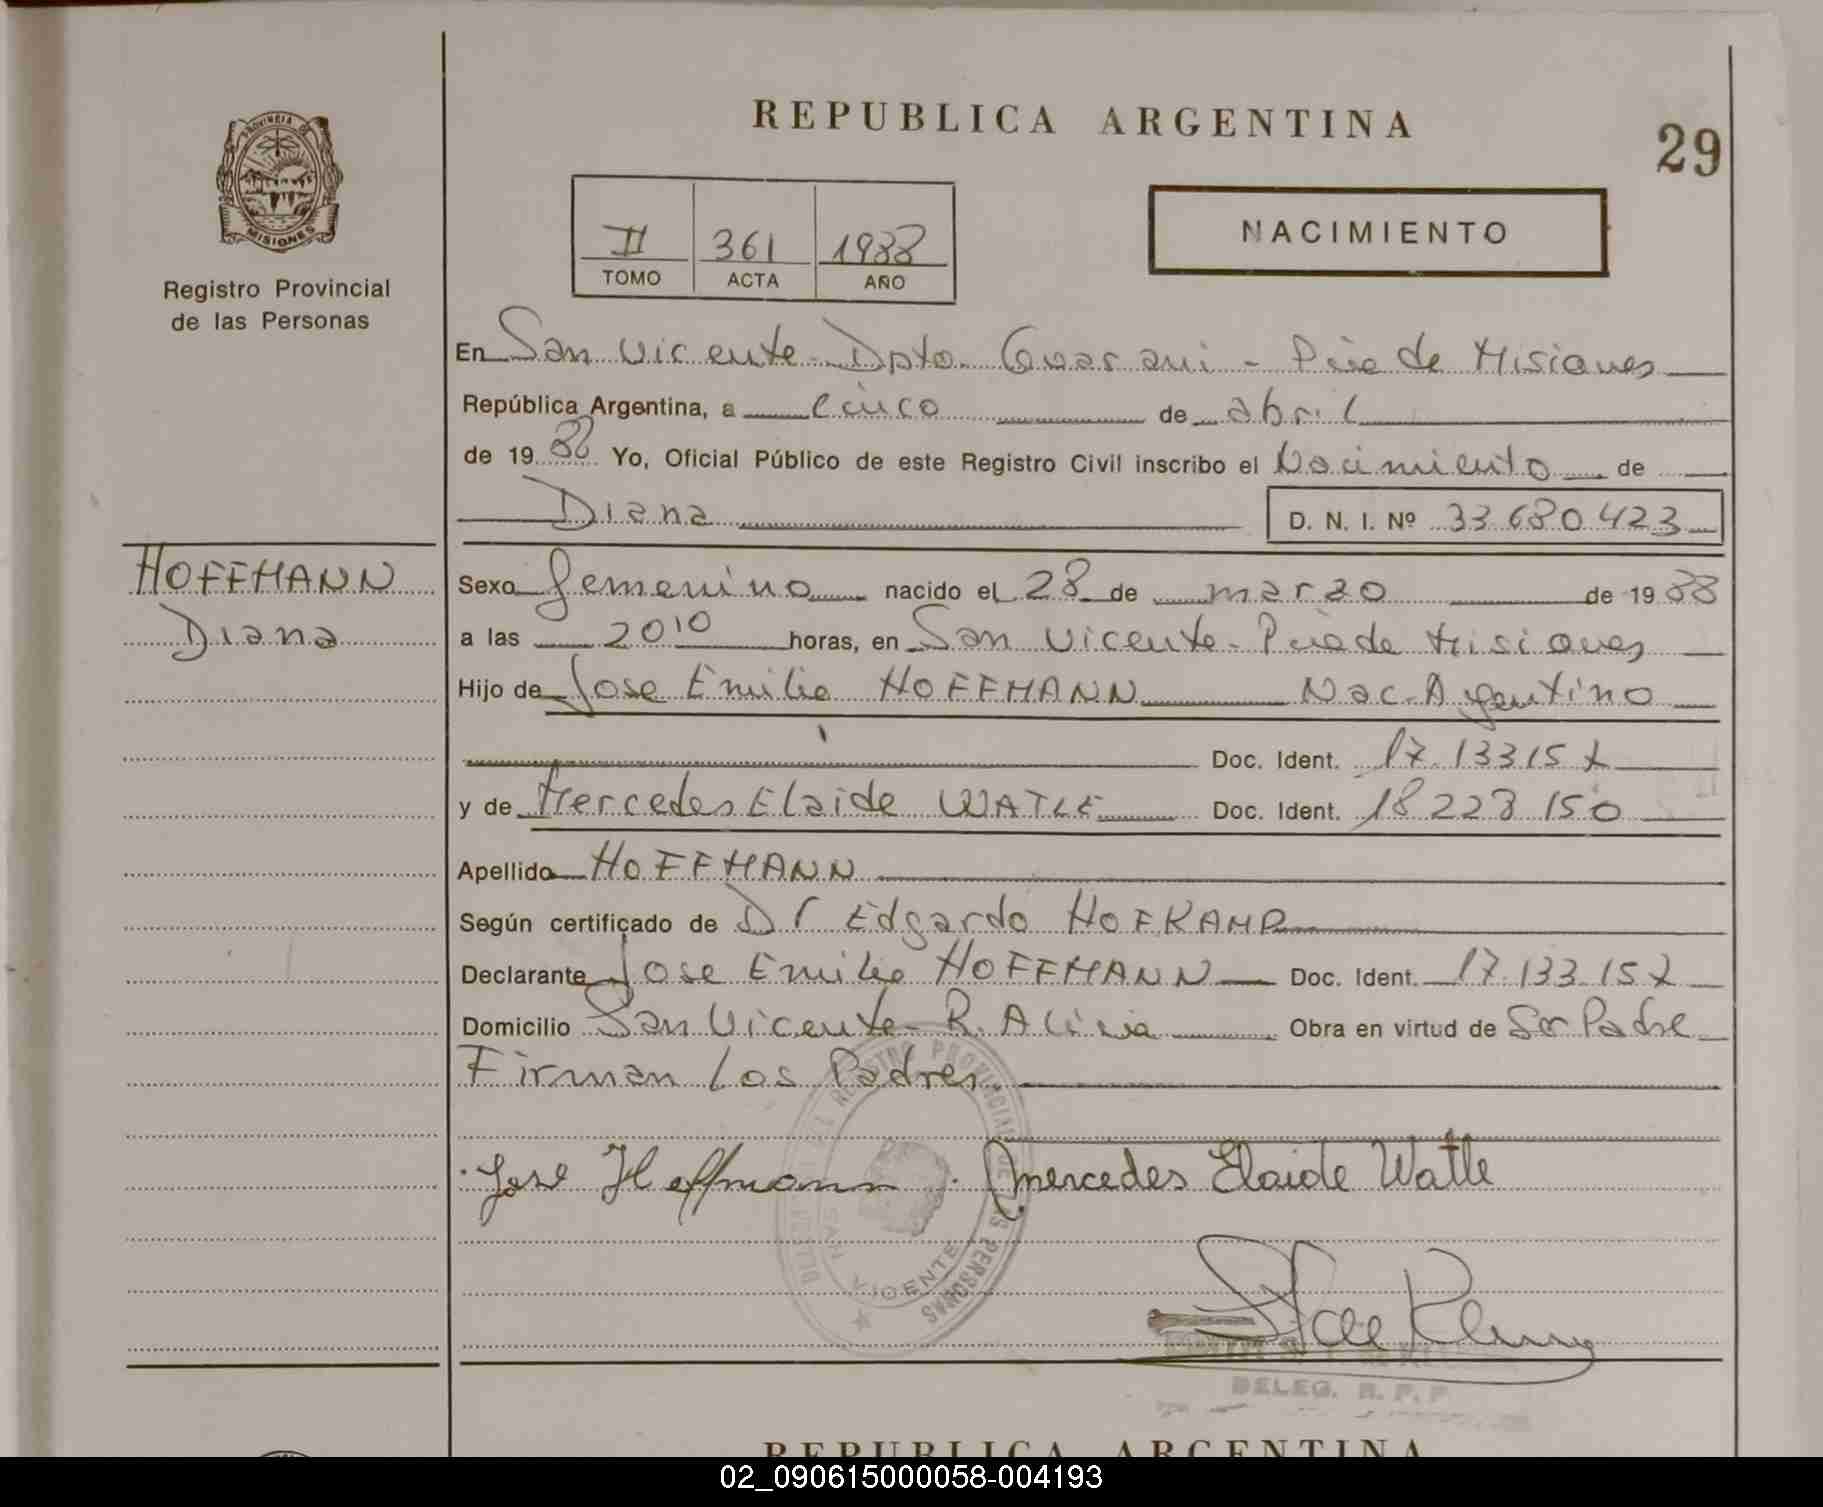 PROVINCIA DE
MISIONES
Registro Provincial
de las Personas
HOFFMANN
Diana
REPUBLICA ARGENTINA
29
II 361 1988
TOMO ACTA AÑO
NACIMIENTO
En San Vicente - Dpto. Guarani - Pcia de Misiones
República Argentina, a cinco de abril
de 19 88 Yo, Oficial Público de este Registro Civil inscribo el Nacimiento de
Diana D. N. I. Nº 33 680 423
Sexo femenino nacido el 28 de marzo de 19 88
a las 20 10 horas, en San Vicente - Pcia de Misiones
Hijo de Jose Emilio HOFFMANN Nac. Argentino
Doc. Ident. 17.133157
y de Mercedes Elaide WATLE Doc. Ident. 18 228 150
Apellido HOFFMANN
Según certificado de Dr Edgardo HOFKAMP
Declarante Jose Emilio HOFFMANN Doc. Ident. 17.133.157
Domicilio San Vicente - R. Alicia Obra en virtud de Ser Padre
Firman Los Padres.
Jose Hoffmann . Mercedes Elaide Watle
REGISTRO PROVINCIAL DE LAS PERSONAS
SAN VICENTE
DELEG. R. P. P
REPUBLICA ARGENTINA
02_090615000058-004193